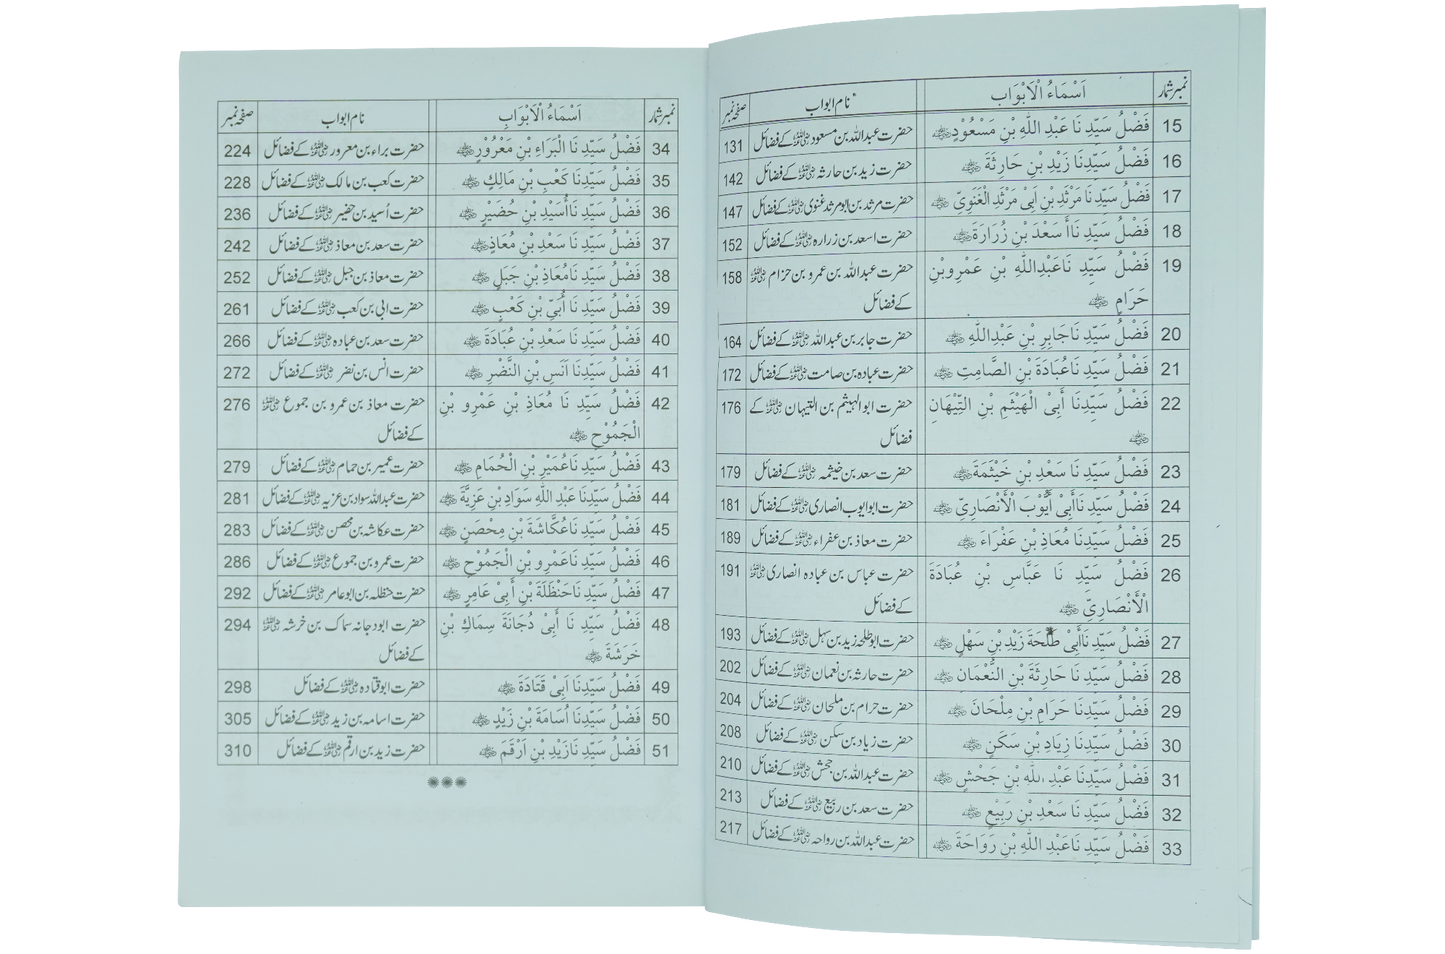 نمبر شمار اَسْمَاءُ الْاَبْوَابِ نام ابواب صفحہ نمبر
15 فَضْلُ سَيِّدِ نَا عَبْدِ اللّٰهِ بْنِ مَسْعُوْدٍ ﷛ حضرت عبداللہ بن مسعود ﷛ کے فضائل 131
16 فَضْلُ سَيِّدِنَا زَيْدِ بْنِ حَارِثَةَ ﷛ حضرت زید بن حارثہ ﷛ کے فضائل 142
17 فَضْلُ سَيِّدِنَا مَرْثَدِ بْنِ اَبِیْ مَرْثَدِ الْغَنَوِيِّ ﷛ حضرت مرثد بن ابو مرثد غنوی ﷛ کے فضائل 147
18 فَضْلُ سَيِّدِ نَا أَسْعَدَ بْنِ زُرَارَةَ ﷛ حضرت اسعد بن زرارہ ﷛ کے فضائل 152
19 فَضْلُ سَيِّدِ نَا عَبْدِاللّٰهِ بْنِ عَمْرِو بْنِ حضرت عبداللہ بن عمرو بن حزام ﷛ 158
حَرَامٍ ﷛ کے فضائل
20 فَضْلُ سَيِّدِ نَا جَابِرِ بْنِ عَبْدِاللّٰهِ ﷛ حضرت جابر بن عبداللہ ﷛ کے فضائل 164
21 فَضْلُ سَيِّدِ نَا عُبَادَةَ بْنِ الصَّامِتِ ﷛ حضرت عبادہ بن صامت ﷛ کے فضائل 172
22 فَضْلُ سَيِّدِنَا أَبِیْ الْهَيْثَمِ بْنِ التِّيْهَانِ حضرت ابوالہیثم بن التیہان ﷛ کے 176
﷛ فضائل
23 فَضْلُ سَيِّدِ نَا سَعْدِ بْنِ خَيْثَمَةَ ﷛ حضرت سعد بن خیثمہ ﷛ کے فضائل 179
24 فَضْلُ سَيِّدِ نَا أَبِیْ أَيُّوْبَ الْأَنْصَارِيِّ ﷛ حضرت ابو ایوب انصاری ﷛ کے فضائل 181
25 فَضْلُ سَيِّدِنَا مُعَاذِ بْنِ عَفْرَاءَ ﷛ حضرت معاذ بن عفراء ﷛ کے فضائل 189
26 فَضْلُ سَيِّدِ نَا عَبَّاسِ بْنِ عُبَادَةَ حضرت عباس بن عبادہ انصاری ﷛ 191
الْأَنْصَارِيِّ ﷛ کے فضائل
27 فَضْلُ سَيِّدِ نَا أَبِیْ طَلْحَةَ زَيْدِ بْنِ سَهْلٍ ﷛ حضرت ابو طلحہ زید بن سہل ﷛ کے فضائل 193
28 فَضْلُ سَيِّدِ نَا حَارِثَةَ بْنِ النُّعْمَانِ ﷛ حضرت حارثہ بن نعمان ﷛ کے فضائل 202
29 فَضْلُ سَيِّدِنَا حَرَامِ بْنِ مِلْحَانَ ﷛ حضرت حرام بن ملحان ﷛ کے فضائل 204
30 فَضْلُ سَيِّدِنَا زِيَادِ بْنِ سَكَنٍ ﷛ حضرت زیاد بن سکن ﷛ کے فضائل 208
31 فَضْلُ سَيِّدِنَا عَبْدِ اللّٰهِ بْنِ جَحْشٍ ﷛ حضرت عبداللہ بن جحش ﷛ کے فضائل 210
32 فَضْلُ سَيِّدِ نَا سَعْدِ بْنِ رَبِيْعٍ ﷛ حضرت سعد بن ربیع ﷛ کے فضائل 213
33 فَضْلُ سَيِّدِ نَا عَبْدِ اللّٰهِ بْنِ رَوَاحَةَ ﷛ حضرت عبداللہ بن رواحہ ﷛ کے فضائل 217
نمبر شمار اَسْمَاءُ الْاَبْوَابِ نام ابواب صفحہ نمبر
34 فَضْلُ سَيِّدِ نَا الْبَرَاءِ بْنِ مَعْرُوْرٍ ﷛ حضرت براء بن معرور ﷛ کے فضائل 224
35 فَضْلُ سَيِّدِنَا كَعْبِ بْنِ مَالِكٍ ﷛ حضرت کعب بن مالک ﷛ کے فضائل 228
36 فَضْلُ سَيِّدِ نَا أُسَيْدِ بْنِ حُضَيْرٍ ﷛ حضرت اُسید بن حضیر ﷛ کے فضائل 236
37 فَضْلُ سَيِّدِ نَا سَعْدِ بْنِ مُعَاذٍ ﷛ حضرت سعد بن معاذ ﷛ کے فضائل 242
38 فَضْلُ سَيِّدِ نَا مُعَاذِ بْنِ جَبَلٍ ﷛ حضرت معاذ بن جبل ﷛ کے فضائل 252
39 فَضْلُ سَيِّدِ نَا أُبَيِّ بْنِ كَعْبٍ ﷛ حضرت ابی بن کعب ﷛ کے فضائل 261
40 فَضْلُ سَيِّدِ نَا سَعْدِ بْنِ عُبَادَةَ ﷛ حضرت سعد بن عبادہ ﷛ کے فضائل 266
41 فَضْلُ سَيِّدِنَا اَنَسِ بْنِ النَّضْرِ ﷛ حضرت انس بن نضر ﷛ کے فضائل 272
42 فَضْلُ سَيِّدِ نَا مُعَاذِ بْنِ عَمْرِو بْنِ حضرت معاذ بن عمرو بن جموع ﷛ 276
الْجَمُوْحِ ﷛ کے فضائل
43 فَضْلُ سَيِّدِ نَا عُمَيْرِ بْنِ الْحُمَامِ ﷛ حضرت عمیر بن حمام ﷛ کے فضائل 279
44 فَضْلُ سَيِّدِنَا عَبْدِ اللّٰهِ سَوَادِ بْنِ عَزِيَّةَ ﷛ حضرت عبداللہ سواد بن عزیہ ﷛ کے فضائل 281
45 فَضْلُ سَيِّدِ نَا عُكَّاشَةَ بْنِ مِحْصَنٍ ﷛ حضرت عکاشہ بن محصن ﷛ کے فضائل 283
46 فَضْلُ سَيِّدِ نَا عَمْرِو بْنِ الْجَمُوْحِ ﷛ حضرت عمرو بن جموع ﷛ کے فضائل 286
47 فَضْلُ سَيِّدِ نَا حَنْظَلَةَ بْنِ أَبِیْ عَامِرٍ ﷛ حضرت حنظلہ بن ابو عامر ﷛ کے فضائل 292
48 فَضْلُ سَيِّدِ نَا أَبِیْ دُجَانَةَ سِمَاكِ بْنِ حضرت ابودجانہ سماک بن خرشہ ﷛ 294
خَرَشَةَ ﷛ کے فضائل
49 فَضْلُ سَيِّدِنَا اَبِیْ قَتَادَةَ ﷛ حضرت ابو قتادہ ﷛ کے فضائل 298
50 فَضْلُ سَيِّدِنَا اُسَامَةَ بْنِ زَيْدٍ ﷛ حضرت اسامہ بن زید ﷛ کے فضائل 305
51 فَضْلُ سَيِّدِ نَا زَيْدِ بْنِ اَرْقَمَ ﷛ حضرت زید بن ارقم ﷛ کے فضائل 310